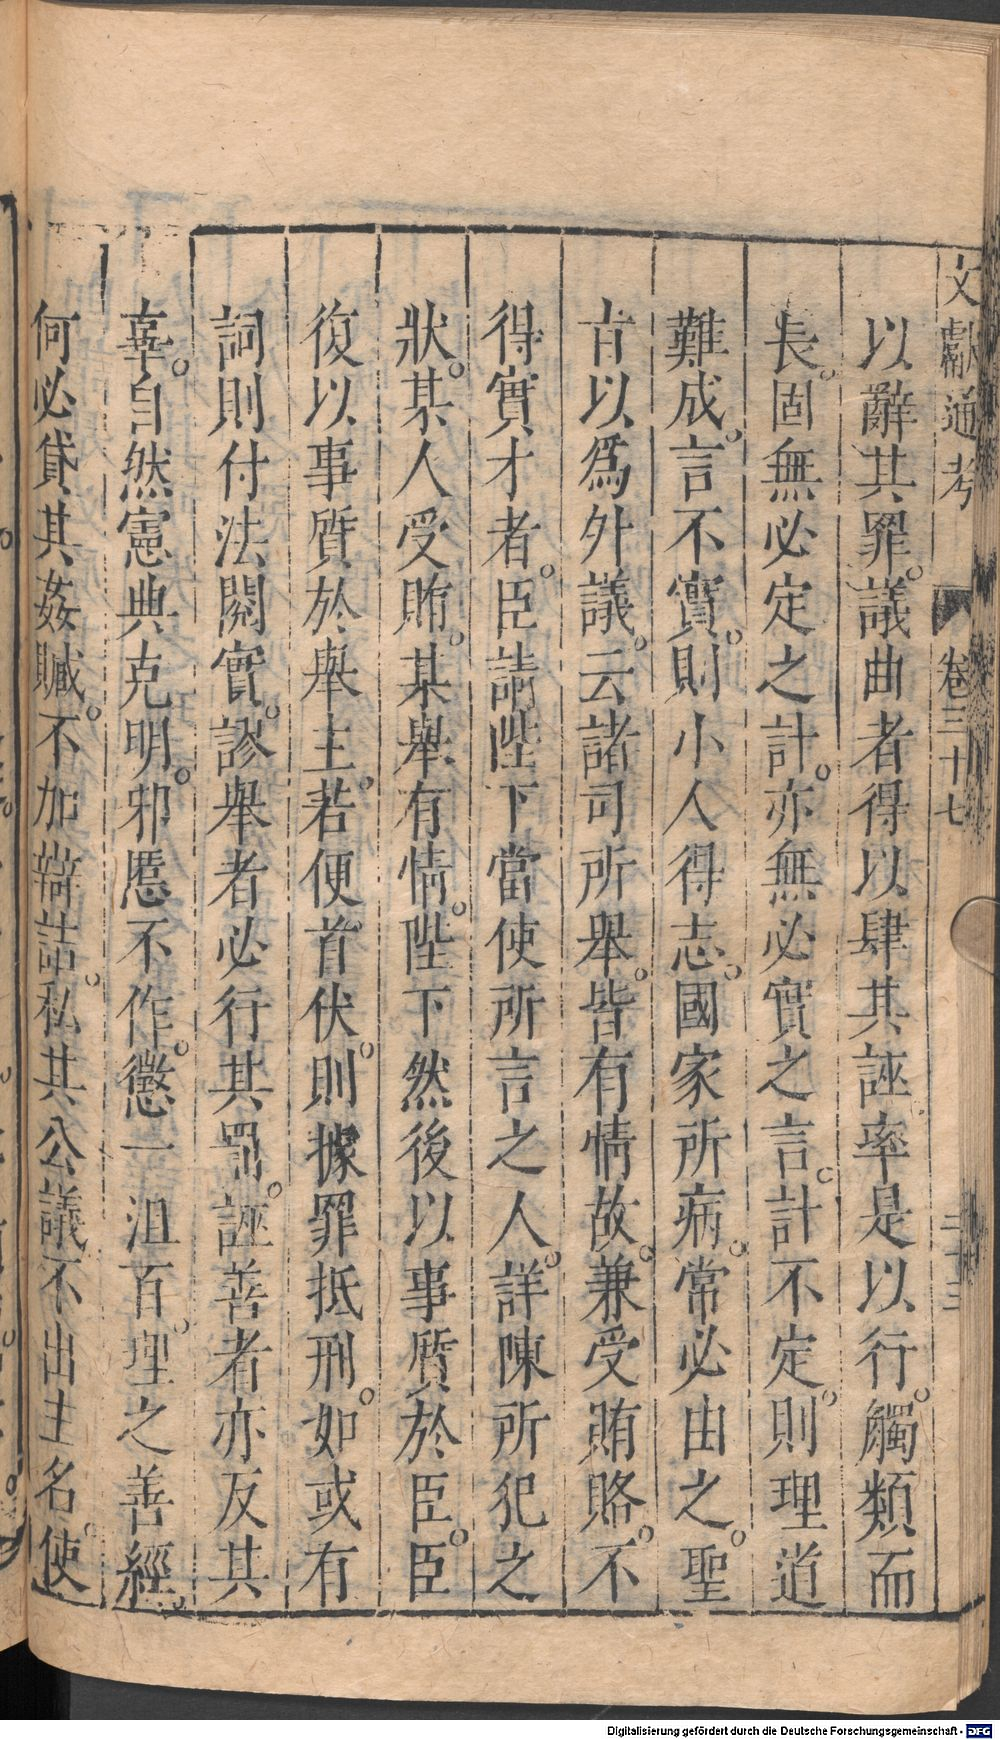 文獻通考 卷三十七 二十三
以辭其罪。議曲者得以肆其誣率是以行。觸類而
長。固無必定之計。亦無必實之言。計不定。則理道
難成。言不實。則小人得志。國家所病。常必由之。聖
旨以爲外議。云諸司所舉。皆有情故。兼受賄賂。不
得實才者。臣請陛下當使所言之人。詳陳所犯之
狀。某人受賄。某舉有情。陛下然後以事質於臣。臣
復以事質於舉主。若便首伏。則據罪抵刑。如或有
詞則付法閱實。謬舉者必行其罰。誣善者亦反其
辜。自然憲典克明。邪慝不作。懲一沮百。理之善經。
何必貸其姦贓。不加辯詰。私其公議不出主名。使
Digitalisierung gefördert durch die Deutsche Forschungsgemeinschaft - DFG